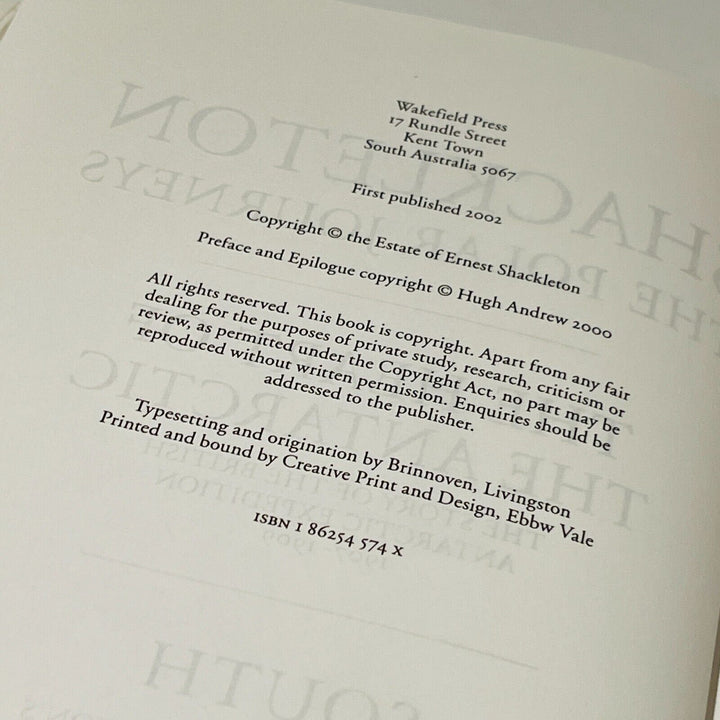 Wakefield Press
17 Rundle Street
Kent Town
South Australia 5067
First published 2002
Copyright © the Estate of Ernest Shackleton
Preface and Epilogue copyright © Hugh Andrew 2000
All rights reserved. This book is copyright. Apart from any fair
dealing for the purposes of private study, research, criticism or
review, as permitted under the Copyright Act, no part may be
reproduced without written permission. Enquiries should be
addressed to the publisher.
Typesetting and origination by Brinnoven, Livingston
Printed and bound by Creative Print and Design, Ebbw Vale
ISBN 1 86254 574 X
SHACKLETON
THE POLAR JOURNEYS
THE ANTARCTIC
THE STORY OF THE BRITISH
ANTARCTIC EXPEDITION
SOUTH